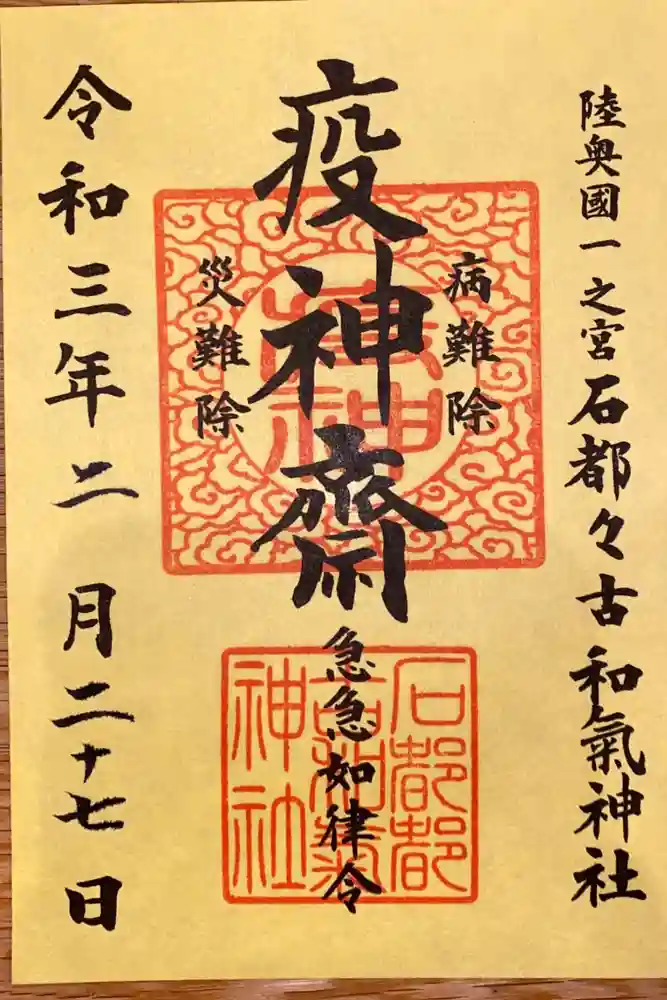 陸奥國一之宮石都々古和氣神社
病難除
疫神齋
災難除
急急如律令
令和三年二月二十七日
石都都
古和氣
神社